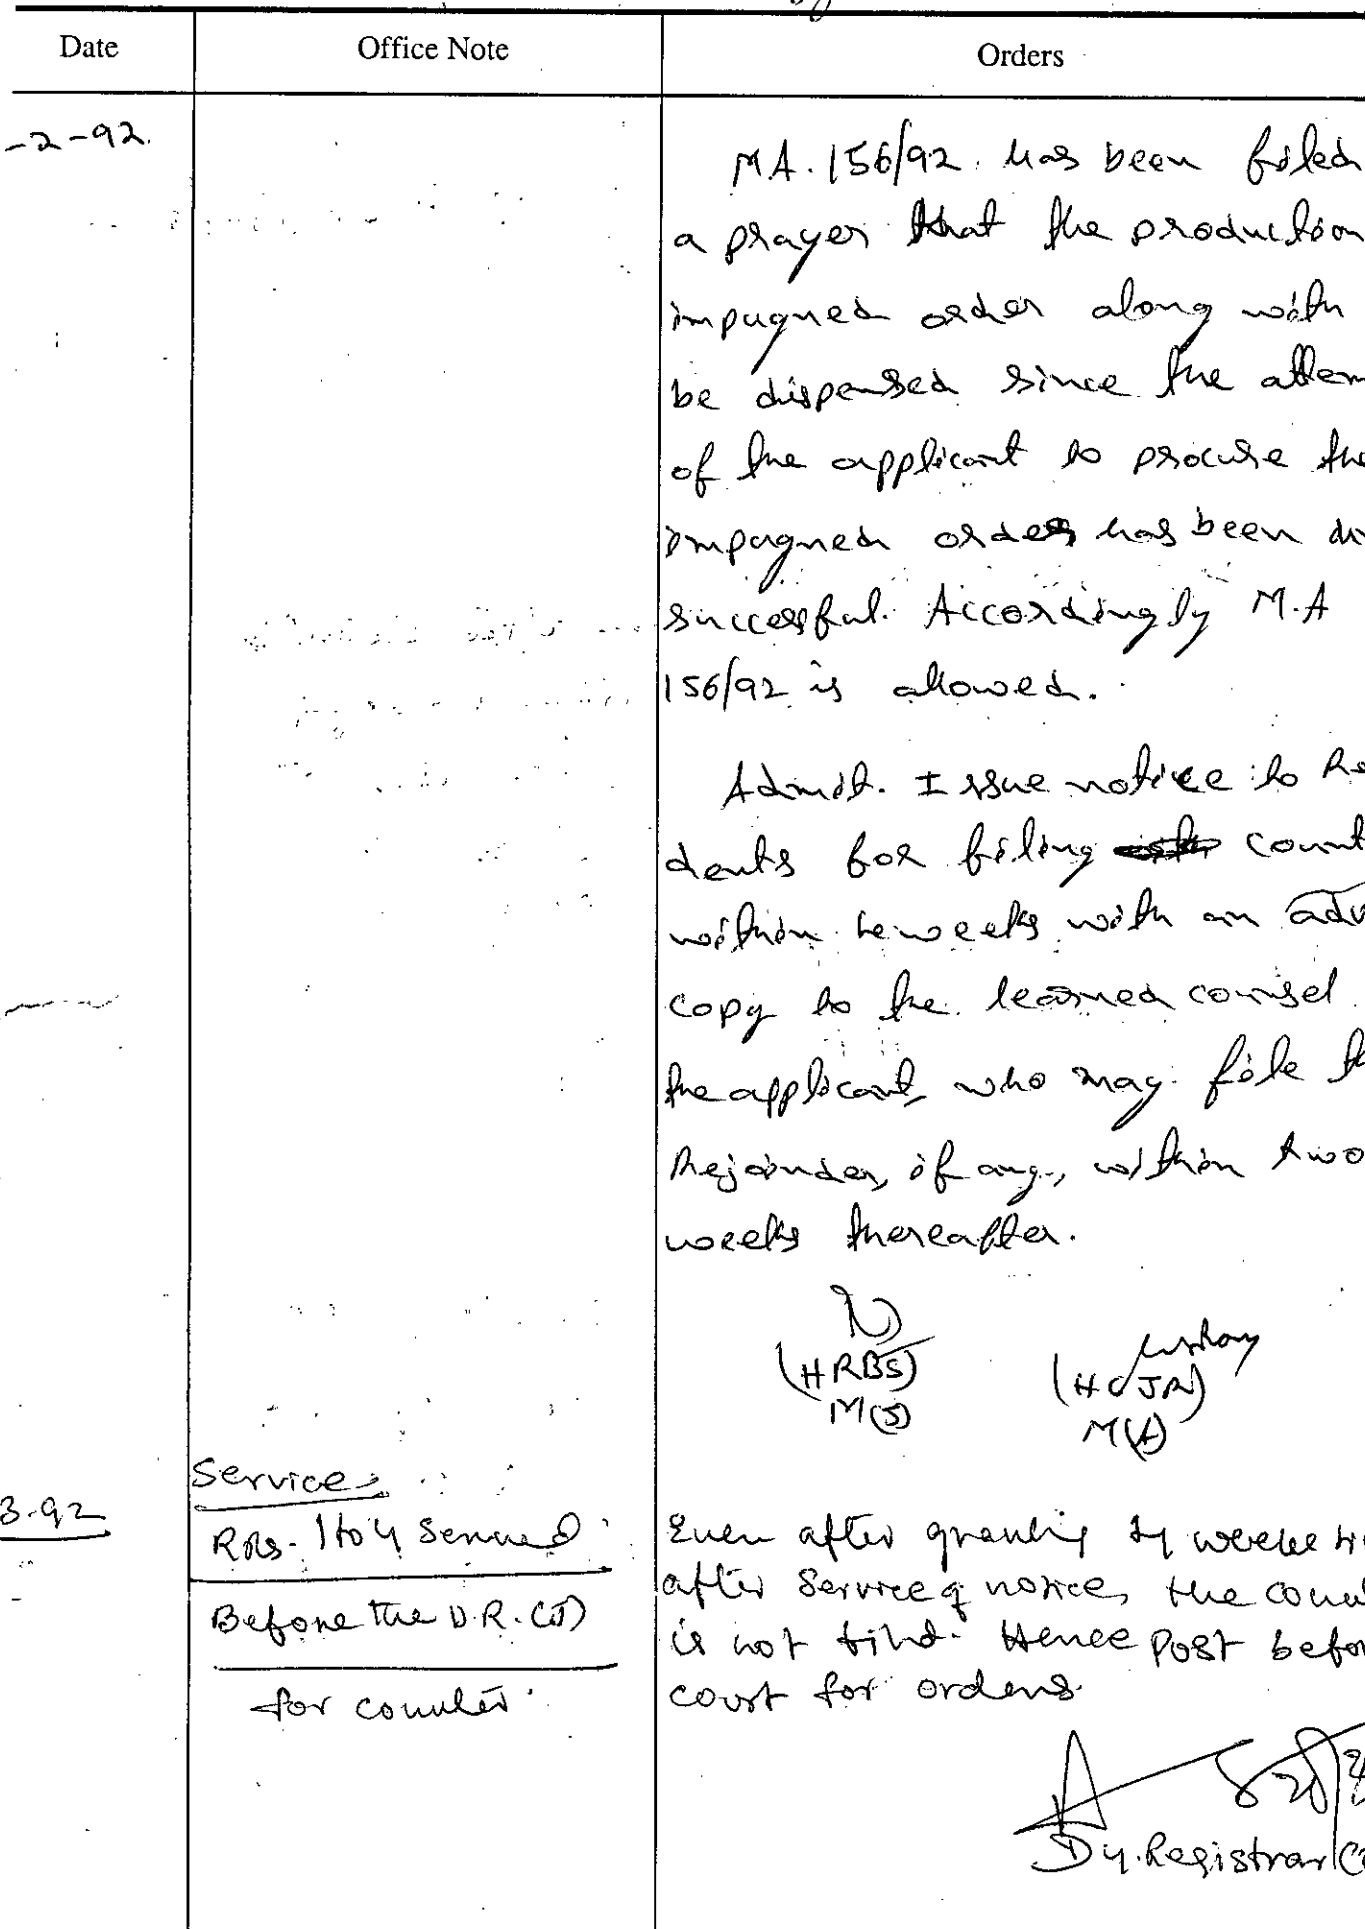 Date Office Note Orders
-2-92.
M.A. 156/92. has been filed
a prayer that the production
impugned order along with
be dispensed since the attem
of the applicant to procure the
impugned order has been
successful. Accordingly M.A
156/92 is allowed.
Admit. Issue notice to Re
dents for filing count
within weeks with an adv
copy to the learned counsel
the applicant, who may file
Rejoinder, if any, within two
weeks thereafter.
(HRBS)
M(J)
M(A)
Service
3-92
RRs. 1 to 4 Served
Before the D.R.(J)
for counter.
Even after granting weeks
after service of notice, the coun
is not filed. Hence post befor
court for orders
Dy. Registrar